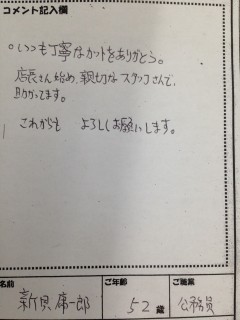 コメント記入欄
○いつも丁寧なカットをありがとう。
店長さん始め、親切なスタッフさんで、
助かってます。
これからも よろしくお願いします。
名前 ご年齢 ご職業
新貝 康一郎 52歳 公務員